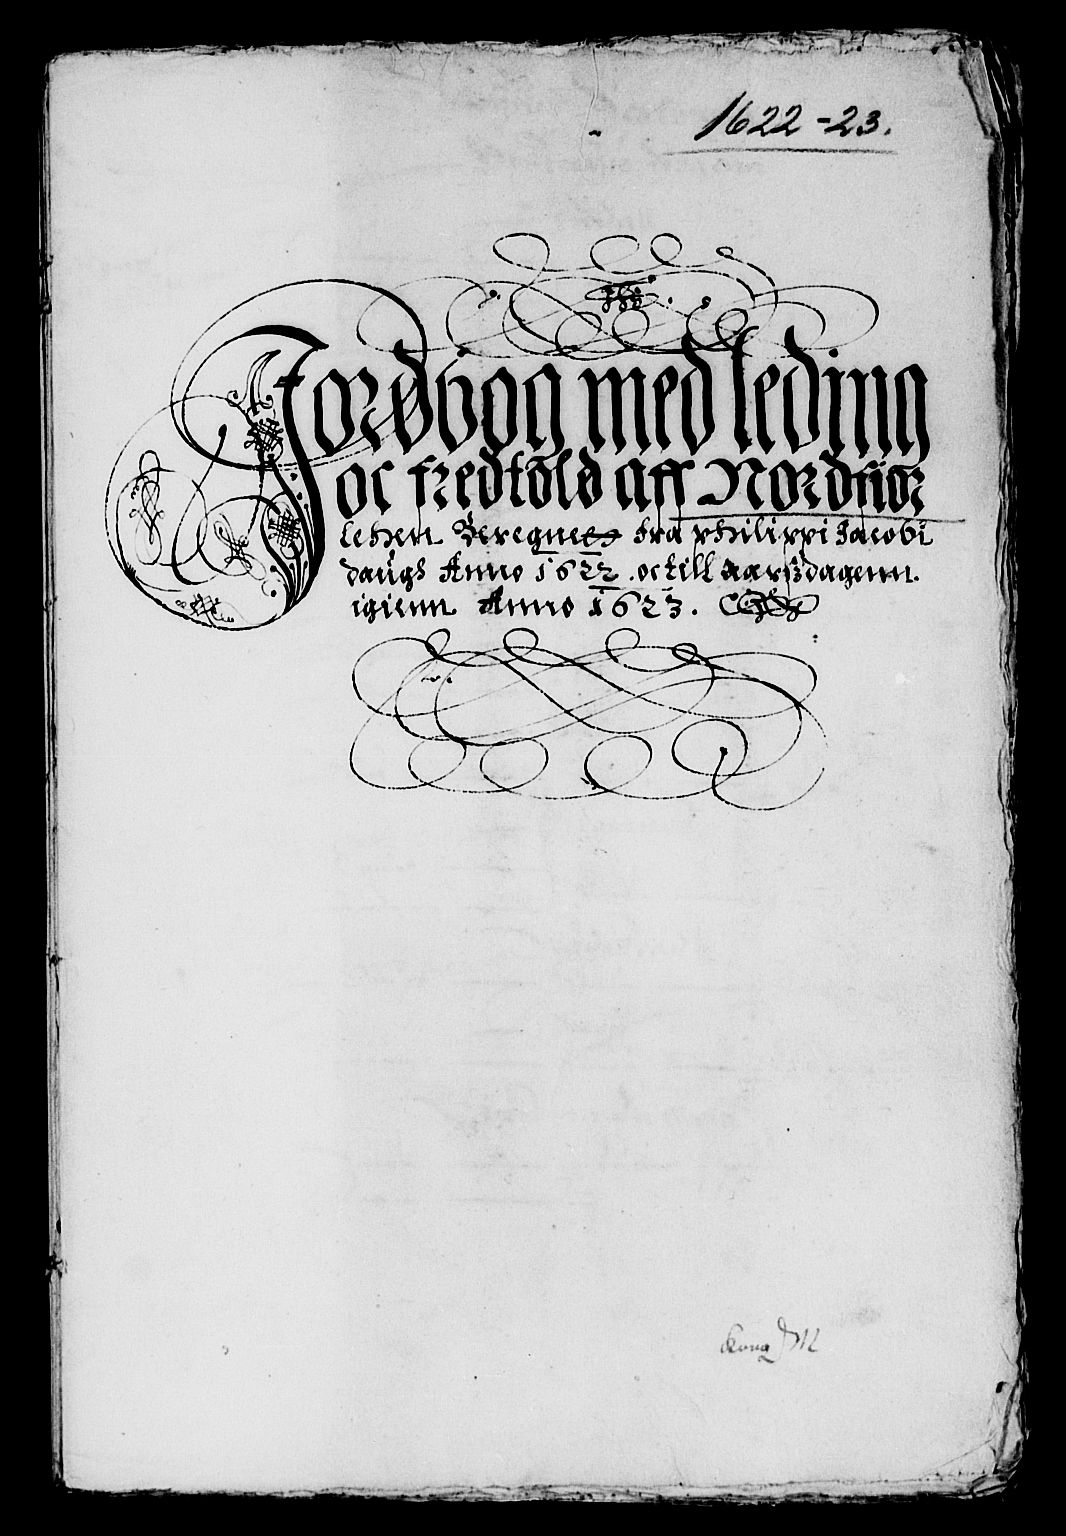 1622-23.
Jordbog med leding
oc fredtold aff Nordfior
lehen Beregnett fra Philippi Jacobi
daugh Anno 1622 . oc till aarsdagenn.
igienn Anno 1623.
Kong